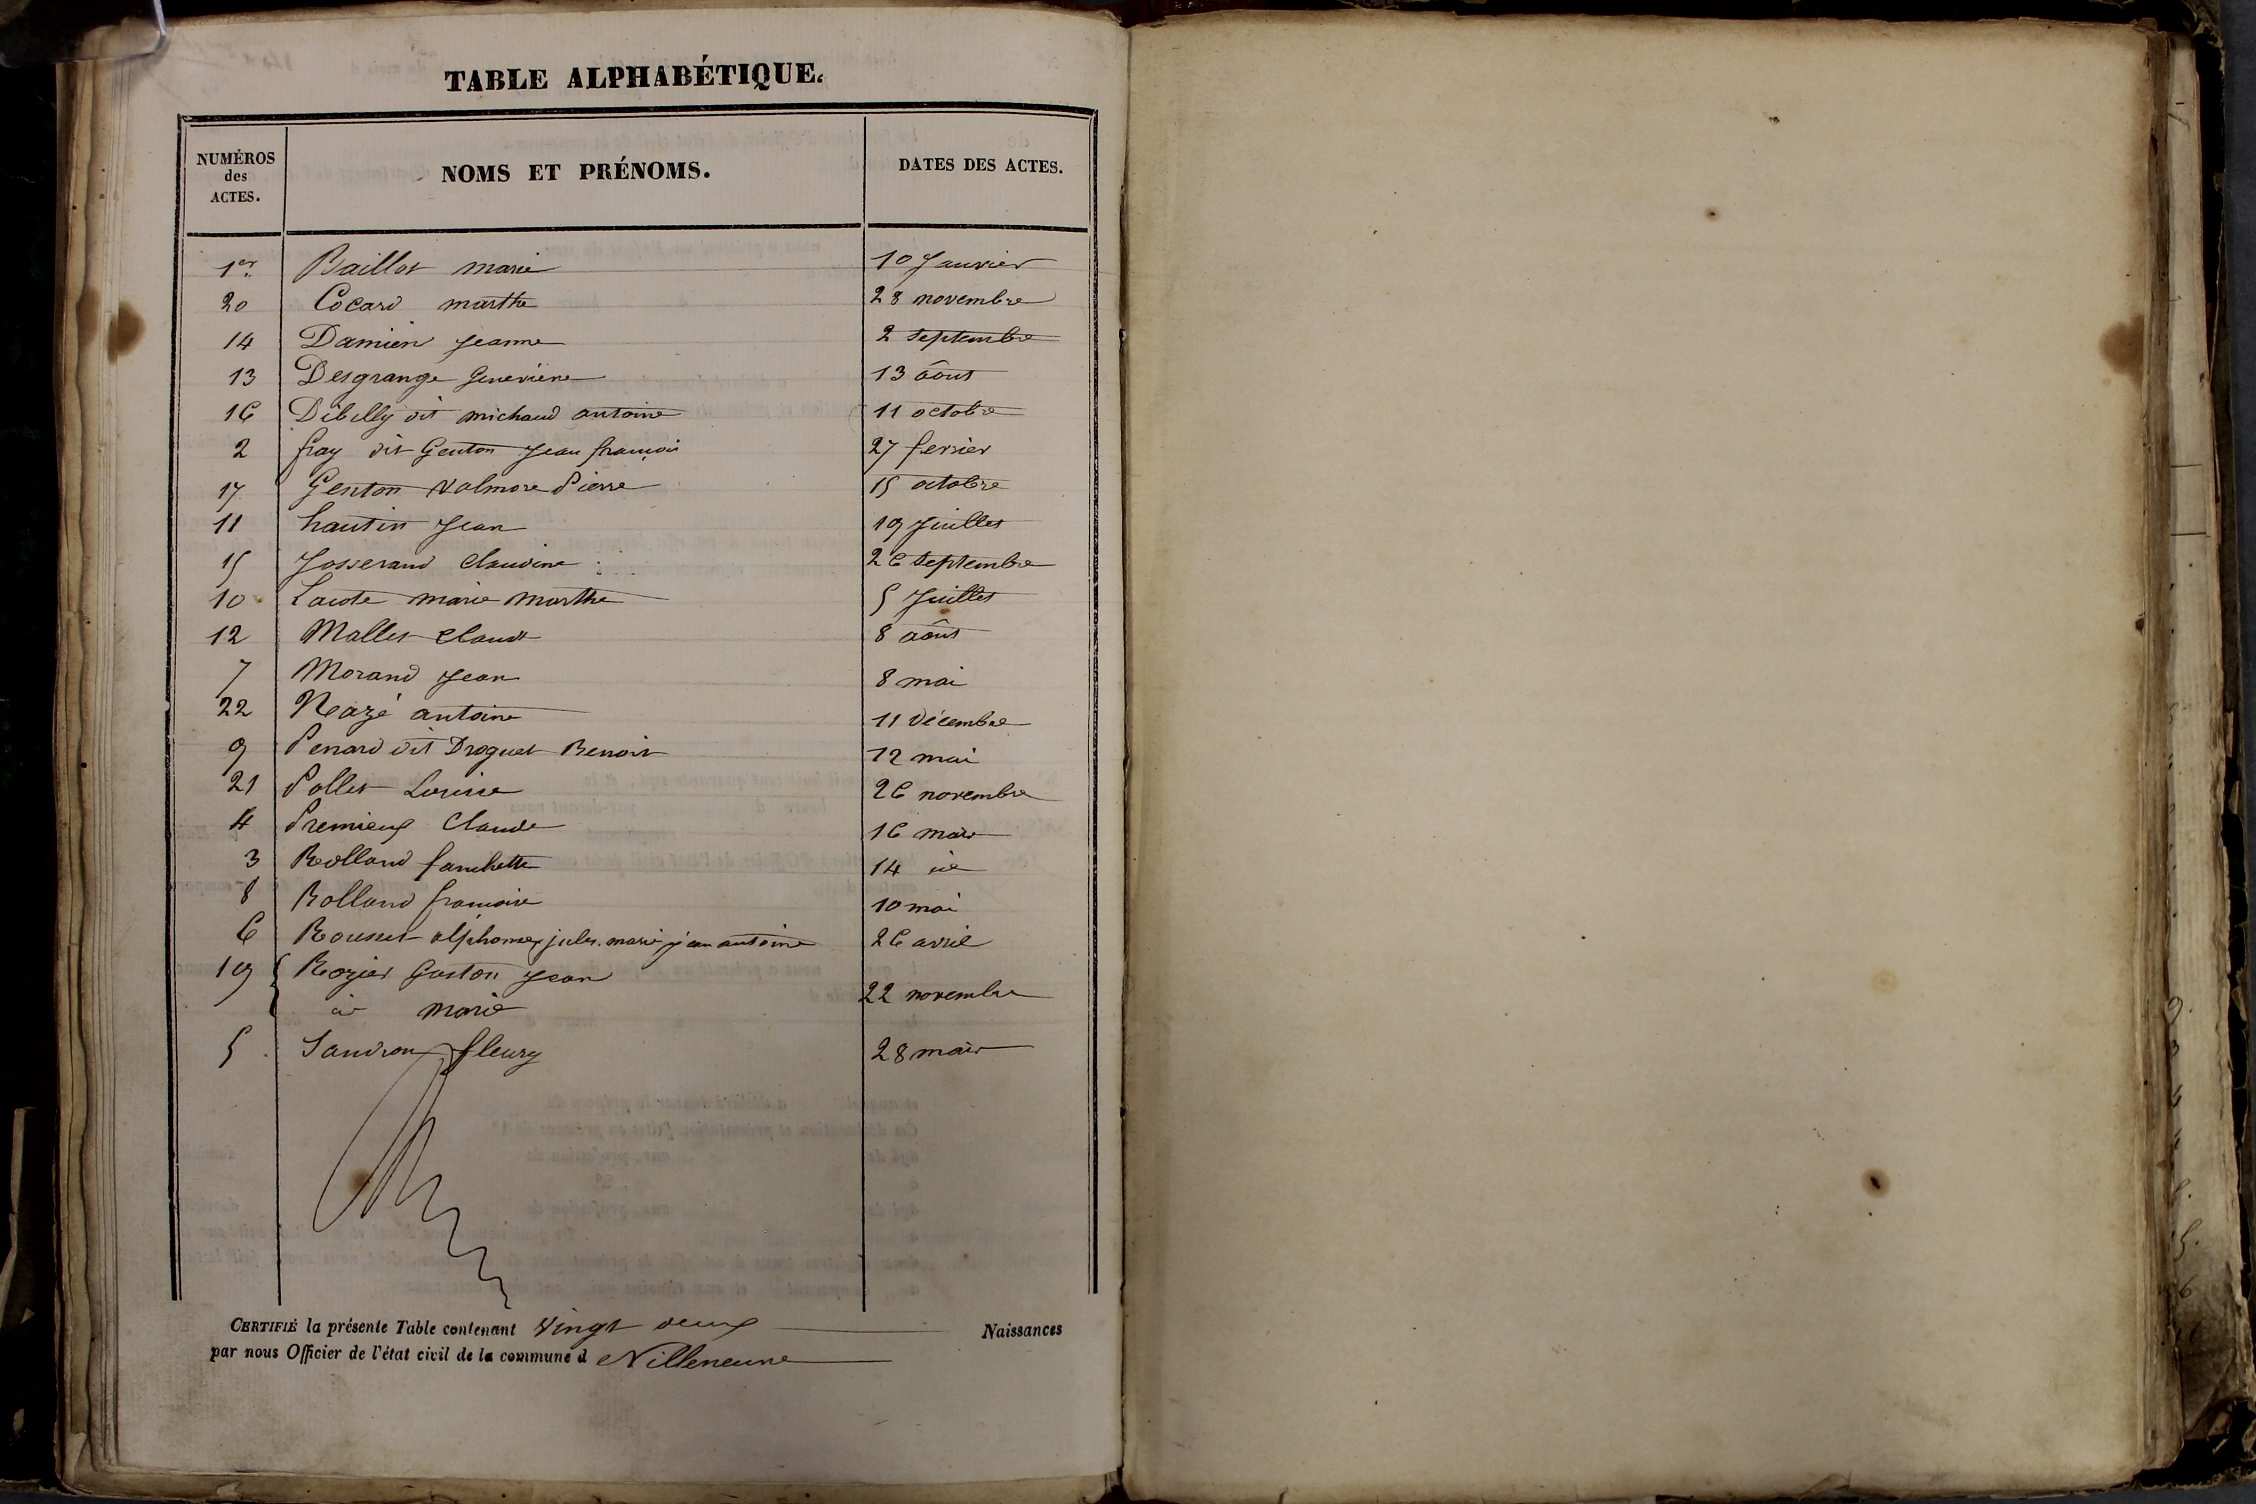 TABLE ALPHABÉTIQUE.
NUMÉROS des ACTES. NOMS ET PRÉNOMS. DATES DES ACTES.
1er Baillot marie 10 Janvier
20 Cocard marthe 28 novembre
14 Damien Jeanne 2 Septembre
13 Desgrange Geneviève 13 âout
16 Débilly dit michaud antoine 11 octobre
2 fray dit Genton Jean françois 27 fevrier
17 Genton Valmore Pierre 15 octobre
11 hautin Jean 19 Juillet
15 Josserand Claudine 26 Septembre
10 Lacote marie marthe 5 Juillet
12 Mallet Claude 8 aôut
7 Morand Jean 8 mai
22 Nazé antoine 11 Décembre
9 Penard dit Droguet Benoit 12 mai
21 Pollet Louise 26 novembre
4 Premieux Claude 16 mars
3 Rolland fanchette 14 id
8 Rolland françoise 10 mai
6 Rousset alphonse, jules. marie jean antoine 26 avril
19 Rozier Gaston Jean
id marie 22 novembre
5 Sandron fleury 28 mars
CERTIFIÉ la présente Table contenant Vingt deux Naissances
par nous Officier de l'état civil de la commune d Villeneuve